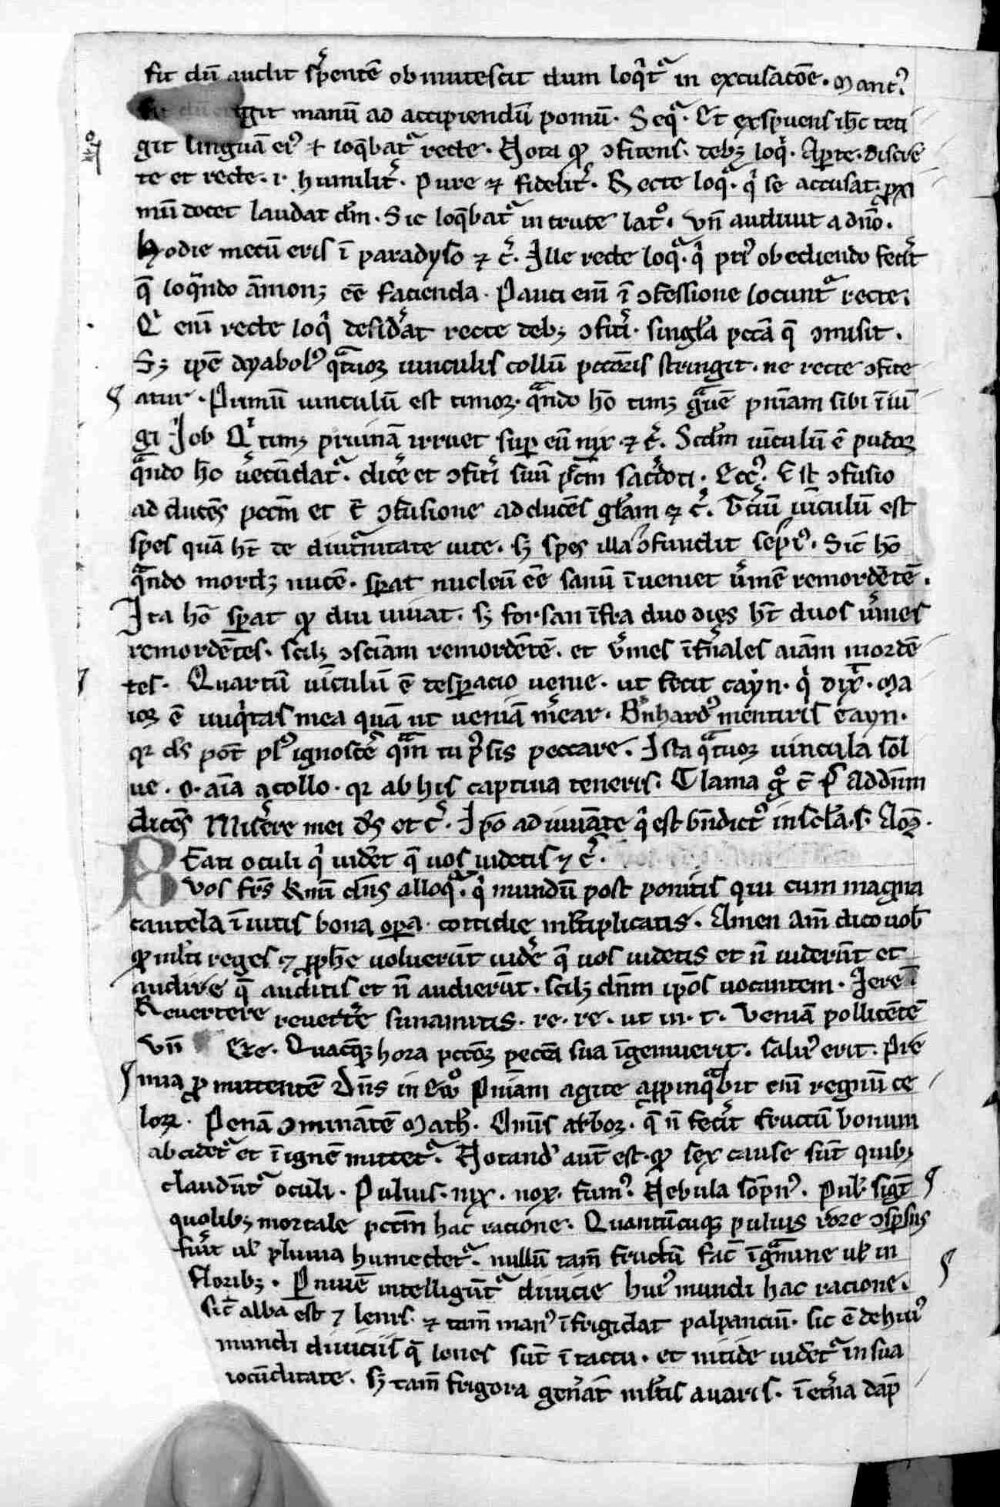 fit dū audit sp̄entē obmutescit dum loq̄t᷑ in excusac̄oē. Manꝰ
fit dū erigit manū ad accipiendū pomū. Seq᷑. Et exspuens ihc̄ teti
git linguā eiꝰ ⁊ loq̄bat᷑ recte. Nota ꝙ ꝯfitens debꝫ loq̄. Aꝑte. discre
te et recte. i. humilit̄. Pure ⁊ fidelit̄. Recte loq᷑. q̇ se accusat. ꝓxi
mū docet laudat dm̄. Sic loq̄bat᷑ in cruce latᵒ. vn̄ audiuit a dn̄o.
Hodie mecū eris ī paradyso ⁊ c̄. Ille recte loq᷑. q̇ pꝰ obediendo fec̄it
q̄ loq̄ndo āmonꝫ eē facienda. Pauci eni ī ꝯfessione locunt᷑ recte.
Q̇ eni recte loq̇ desid̄at recte debꝫ ꝯfit̄i singl̄a pccā q̄ ꝯmisit.
Sꝫ ip̄e dyabolꝰ q̄tuoꝝ uinculis collū pcc̄oris stringit. ne recte ꝯfite
atur. Primū uinculū est timor. q̄ndo hō timꝫ ḡuē pn̄iam sibi īiū
gi. Job Q̇ timꝫ pruinā irruet sup eū nix ⁊ c̄. Scd̄m uīculū ē pudor
q̄ndo hō uēcūdat᷑. dic̄e et ꝯfit̄i suū pc̄cm sac̄doti. Eccꝰ. Est ꝯfusio
adducēs pccm̄ et ē ꝯfusione adducēs gl̄am ⁊ c̄. Tc̄iū uīculū est
spes quā hт̄ de diut̄nitate uite. sꝫ spes illa ꝯfundit sepꝰ. Sic hō
q̄ndo mordꝫ nucē. sꝑat nucleū eē sanū īueniet ūmē remordētē.
Ita hō sꝑat ꝙ diu uiuat. sꝫ forsan īfra duo dies ht̄ duos ūmes
remordētes. scilꝫ ꝯsciam remordētē. et ūmes īfn̄ales aīam mordē
tes. Quartū uīculū ē desꝑacio uenie. ut fecit cayn. q̇ dix̄. Ma
ior ē iniq̇tas mea quā ut ueniā m̄ear. Bn̄hardꝰ mentiris cayn.
qr ds̄ pot̄ plꝰ ignosc̄e q̄m tu p̄sis peccare. Ista q̄tuor uincula sol
ue. o. aīa a collo. qr ab his captiua teneris. Clama gᵒ c̄ ps̄ ad dn̄m
dicēs Misēre mei ds̄ et c̄. Ip̄o adiuuāte q̇ est bn̄dictꝰ in sc̄la. s. Am̄.
BEati oculi q̇ uidēt q̄ uos uidetis ⁊ c̄.
Vos fr̄s kmi dn̄s alloq᷑. q̇ mundū post ponitis qui cum magna
cautela īuitis bona oꝑa cottidie ml̄tiplicatis. Amen am̄ dico uob̄
ꝙ ml̄ti reges ⁊ ꝓphē uoluerūt uidē q̄ uos uidetis et n̄ uiderūt et
audire q̄ auditis et n̄ audierūt. scilꝫ dn̄m ip̄os uocantem. Jere.
Revertere revert̄e sunamitis. re. re. ut in. t. Veniā pollicētē
vn̄ Eze. Quacūqꝫ hora pcc̄or pecc̄a sua īgemuerit. saluꝰ erit. Pre
mia ꝓmittentē Dn̄s in Ewᵒ Pn̄iam agite apꝓpinq̄bit eni regnū ce
loꝝ. Penā ꝯminātē Math. Omīs arbor. q̄ n̄ fec̄it fructū bonum
abcidet᷑ et ī ignē mittet᷑. Notandꝰ aut̄ est ꝙ sex cause sūt quibꝫ
claudūt᷑ oculi. Puluis. nix. nox. fumꝰ. Nebula sōpnꝰ. Pul. sigt̄
quolibꝫ mortale pcc̄m hac racione. Quantūcūqꝫ puluis rore ꝯsp̄sus
fūit uł pluuia humectet᷑. nullū tam̄ fructū fac̄ ī gramine uł in
floribꝫ. P niuē intelligūt᷑ diuicie huiꝰ mundi hac racione.
sic̄ alba est ⁊ lenis. ⁊ tam̄ manꝰ īfrigidat palpanciū. sic ē de huiꝰ
mundi diuiciis q̄ leues sūt ī tactu. et nitide uidēt᷑ in sua
iocūditate. sꝫ tam̄ frigora gen̄at ml̄tis auaris. ī et̄na dāp